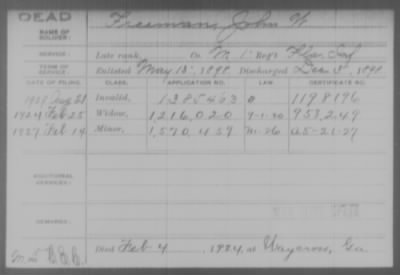 DEAD
NAME OF SOLDIER: Freeman, John W
SERVICE: Late rank, Co. M 1 Reg't Fla. Inf
TERM OF SERVICE: Enlisted May 13, 1898 Discharged Dec 3, 1898
DATE OF FILING. CLASS. APPLICATION NO. LAW CERTIFICATE NO.
Aug Invalid, 1198196
1924 Feb 25 Widow, 1,216,020 953,249
1927 Feb 14 Minor, 1,570,459 A5-21-27
ADDITIONAL SERVICES:
REMARKS:
Died Feb 4 1924, at Waycross, Ga